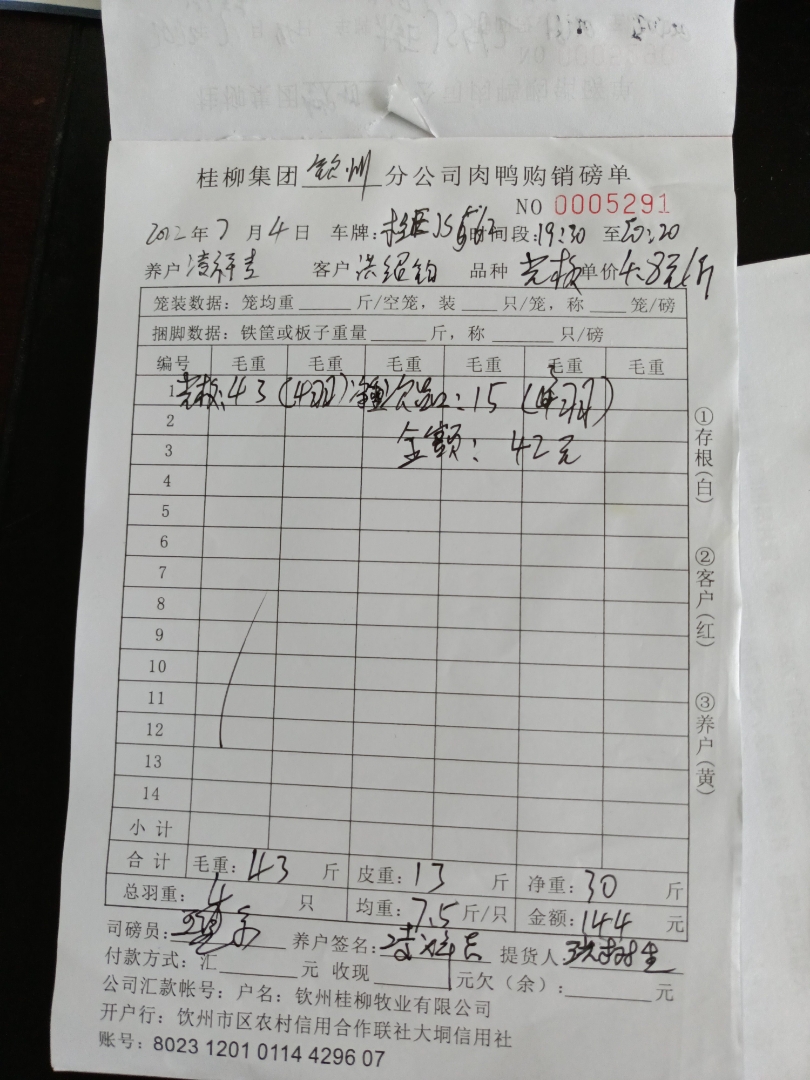 桂柳集团 钦州 分公司肉鸭购销磅单
NO 0005291
2022年7月4日 车牌: 时间段:19:30 至20:20
养户 凌祥吉 客户 洪绍钧 品种 光板 单价4.8元/斤
笼装数据: 笼均重 斤/空笼, 装 只/笼, 称 笼/磅
捆脚数据: 铁筐或板子重量 斤, 称 只/磅
编号 毛重 毛重 毛重 毛重 毛重 毛重
1 光板:43 (4羽) :15
2
3 金额: 42元
4
5
6
7
8
9
10
11
12
13
14
小计
合计 毛重: 43 斤 皮重: 13 斤 净重: 30 斤
总羽重: 4 只 均重: 7.5 斤/只 金额: 144 元
司磅员: 养户签名: 凌祥吉 提货人:
付款方式: 汇 元 收现 元欠(余): 元
公司汇款帐号: 户名: 钦州桂柳牧业有限公司
开户行: 钦州市区农村信用合作联社大垌信用社
账号: 8023 1201 0114 4296 07
①存根(白) ②客户(红) ③养户(黄)